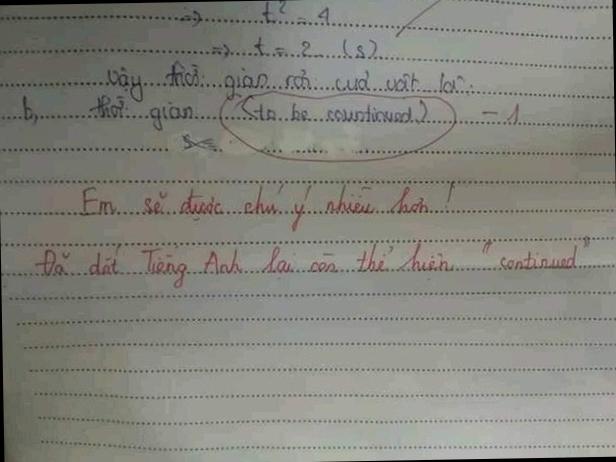 => t² = 4
=> t = 2 (s)
Vậy thời gian rơi của vật là:
b, thời gian (to be countinued) - 1
Em sẽ được chú ý nhiều hơn!
Đã dát Tiếng Anh lại còn thể hiện "continued"